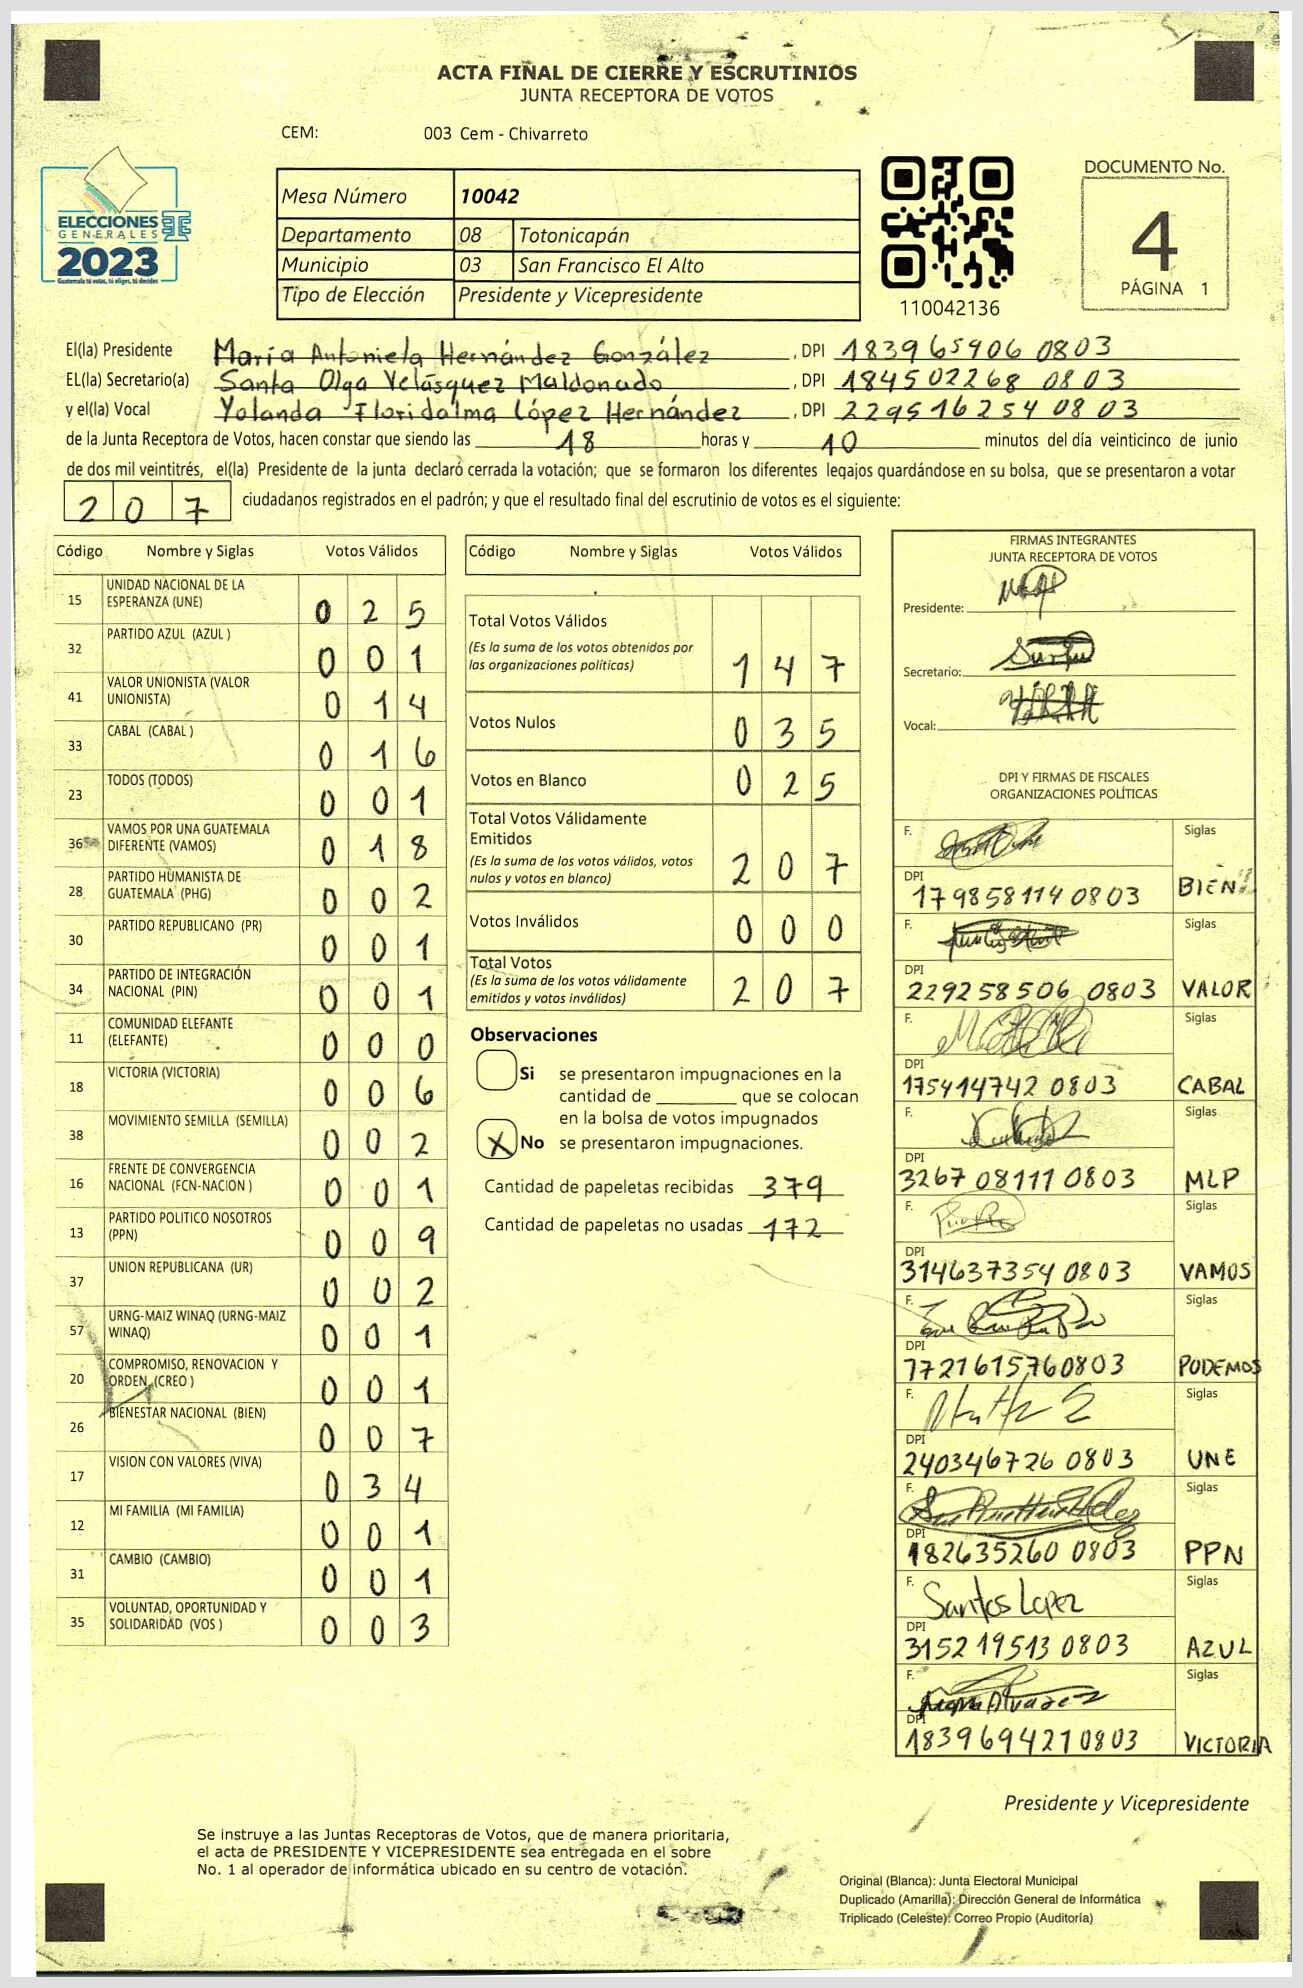 ACTA FINAL DE CIERRE Y ESCRUTINIOS
JUNTA RECEPTORA DE VOTOS
CEM: 003 Cem - Chivarreto
ELECCIONES
GENERALES
2023
Guatemala tú votas, tú eliges, tú decides
Mesa Número 10042
Departamento 08 Totonicapán
Municipio 03 San Francisco El Alto
Tipo de Elección Presidente y Vicepresidente
110042136
DOCUMENTO No.
4
PÁGINA 1
El(la) Presidente María Antoniela Hernández González, DPI 183965906 0803
EL(la) Secretario(a) Santa Olga Velásquez Maldonado, DPI 184502268 0803
y el(la) Vocal Yolanda Floridalma López Hernández, DPI 229516254 0803
de la Junta Receptora de Votos, hacen constar que siendo las 18 horas y 10 minutos del día veinticinco de junio
de dos mil veintitrés, el(la) Presidente de la junta declaró cerrada la votación; que se formaron los diferentes legajos quardándose en su bolsa, que se presentaron a votar
207 ciudadanos registrados en el padrón; y que el resultado final del escrutinio de votos es el siguiente:
Código Nombre y Siglas Votos Válidos
15 UNIDAD NACIONAL DE LA ESPERANZA (UNE) 025
32 PARTIDO AZUL (AZUL ) 001
41 VALOR UNIONISTA (VALOR UNIONISTA) 014
33 CABAL (CABAL ) 016
23 TODOS (TODOS) 001
36 VAMOS POR UNA GUATEMALA DIFERENTE (VAMOS) 018
28 PARTIDO HUMANISTA DE GUATEMALA (PHG) 002
30 PARTIDO REPUBLICANO (PR) 001
34 PARTIDO DE INTEGRACIÓN NACIONAL (PIN) 001
11 COMUNIDAD ELEFANTE (ELEFANTE) 000
18 VICTORIA (VICTORIA) 006
38 MOVIMIENTO SEMILLA (SEMILLA) 002
16 FRENTE DE CONVERGENCIA NACIONAL (FCN-NACION ) 001
13 PARTIDO POLITICO NOSOTROS (PPN) 009
37 UNION REPUBLICANA (UR) 002
57 URNG-MAIZ WINAQ (URNG-MAIZ WINAQ) 001
20 COMPROMISO, RENOVACION Y ORDEN (CREO ) 001
26 BIENESTAR NACIONAL (BIEN) 007
17 VISION CON VALORES (VIVA) 034
12 MI FAMILIA (MI FAMILIA) 001
31 CAMBIO (CAMBIO) 001
35 VOLUNTAD, OPORTUNIDAD Y SOLIDARIDAD (VOS ) 003
Código Nombre y Siglas Votos Válidos
Total Votos Válidos
(Es la suma de los votos obtenidos por
las organizaciones políticas) 147
Votos Nulos 035
Votos en Blanco 025
Total Votos Válidamente
Emitidos
(Es la suma de los votos válidos, votos
nulos y votos en blanco) 207
Votos Inválidos 000
Total Votos
(Es la suma de los votos válidamente
emitidos y votos inválidos) 207
Observaciones
Si se presentaron impugnaciones en la
cantidad de ________ que se colocan
en la bolsa de votos impugnados
X No se presentaron impugnaciones.
Cantidad de papeletas recibidas 379
Cantidad de papeletas no usadas 172
FIRMAS INTEGRANTES
JUNTA RECEPTORA DE VOTOS
Presidente:
Secretario:
Vocal:
DPI Y FIRMAS DE FISCALES
ORGANIZACIONES POLÍTICAS
F. Siglas
DPI
179858114 0803 BIEN
F. Siglas
DPI
229258506 0803 VALOR
F. Siglas
DPI
175414742 0803 CABAL
F. Siglas
DPI
3267 08111 0803 MLP
F. Siglas
DPI
314637354 0803 VAMOS
F. Siglas
DPI
1721615760803 PODEMOS
F. Siglas
DPI
240346726 0803 UNE
F. Siglas
DPI
182635260 0803 PPN
F. Santos Lopez Siglas
DPI
315219513 0803 AZUL
F. Juana Alvarez Siglas
DPI
1839694210803 VICTORIA
Presidente y Vicepresidente
Se instruye a las Juntas Receptoras de Votos, que de manera prioritaria,
el acta de PRESIDENTE Y VICEPRESIDENTE sea entregada en el sobre
No. 1 al operador de informática ubicado en su centro de votación.
Original (Blanca): Junta Electoral Municipal
Duplicado (Amarilla): Dirección General de Informática
Triplicado (Celeste): Correo Propio (Auditoría)